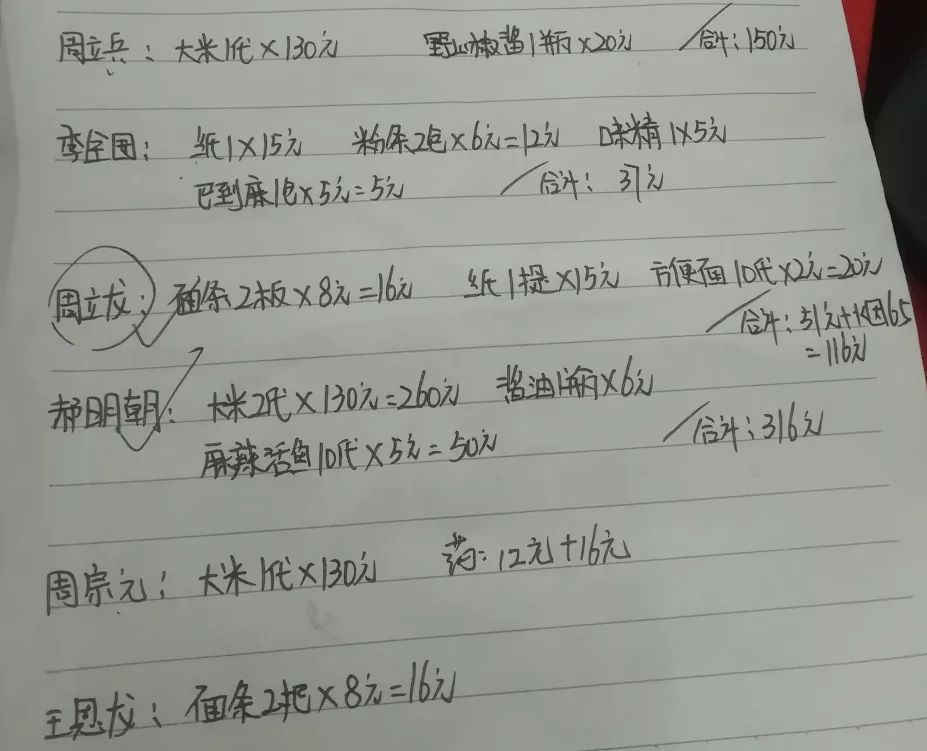 周立兵：大米1代×130元 野山椒酱1瓶×20元 合计：150元
李全国：纸1×15元 粉条2包×6元=12元 味精1×5元
巴到麻1包×5元=5元 合计：37元
周立龙：面条2板×8元=16元 纸1提×15元 方便面10代×2元=20元
合计：51元+165
=116元
郝明朝：大米2代×130元=260元 酱油1瓶×6元
麻辣活鱼10代×5元=50元 合计：316元
周宗元：大米1代×130元 药：12元+16元
王恩龙：面条2把×8元=16元